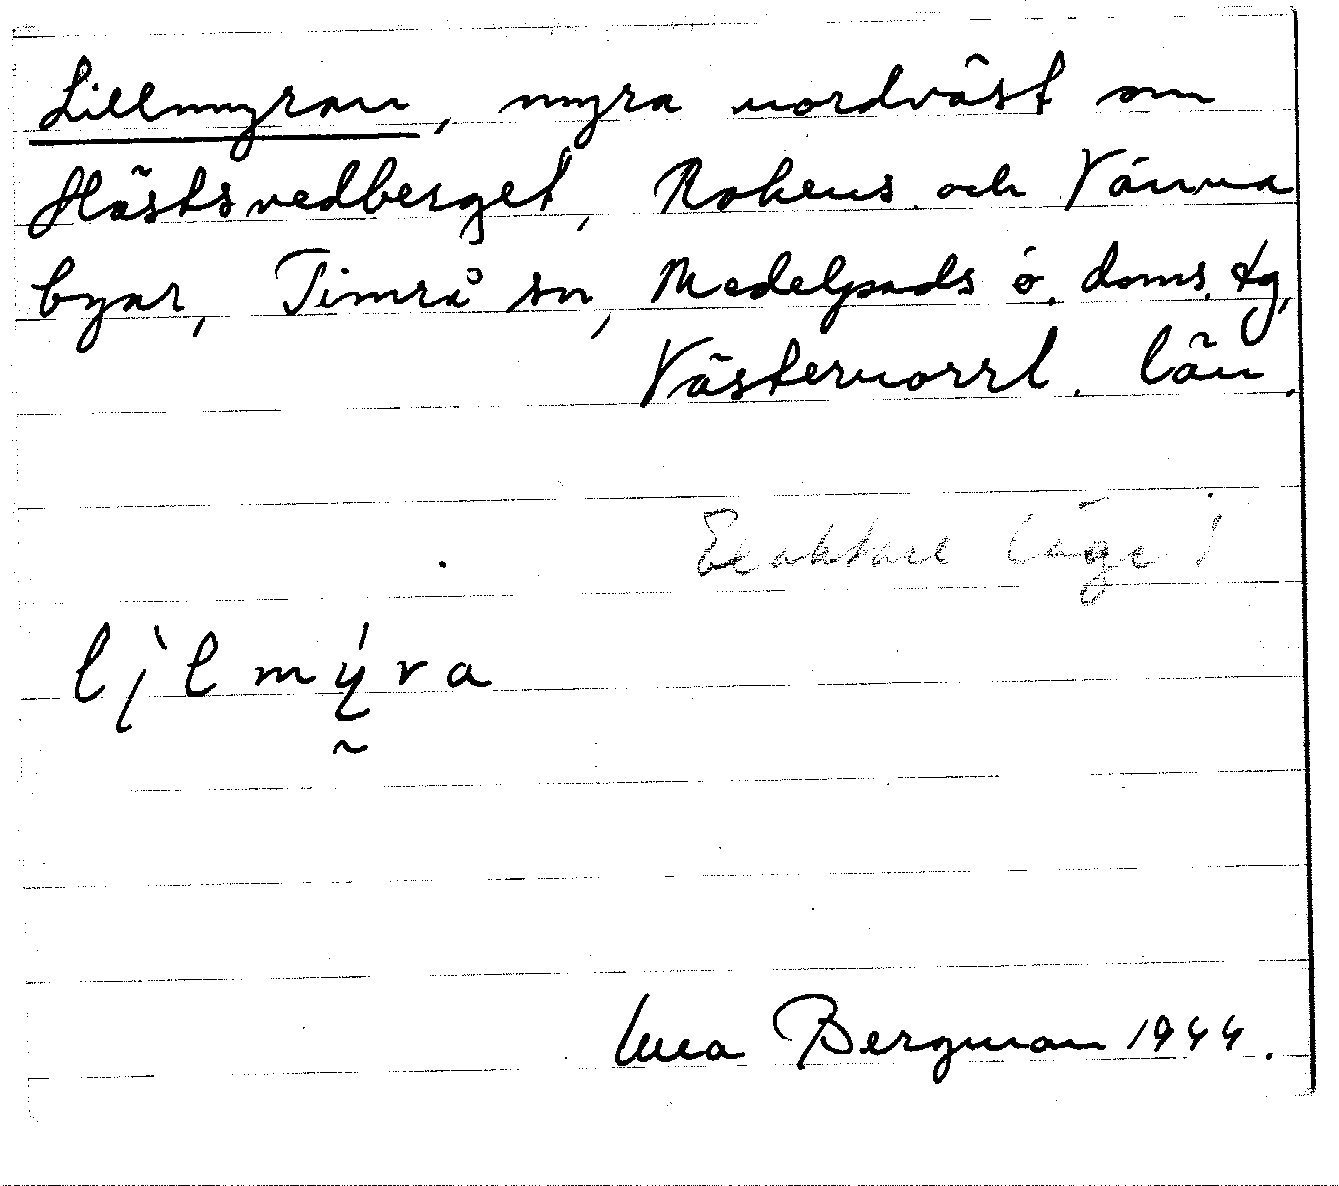 Lillmyran, myra nordväst om
Hästsvedberget, Rokens och Vänna
byar, Timrå sn, Medelpads ö. doms. tg,
Västernorrl. län.
Exaktare läge!
lįlmýra
Una Bergman 1944.